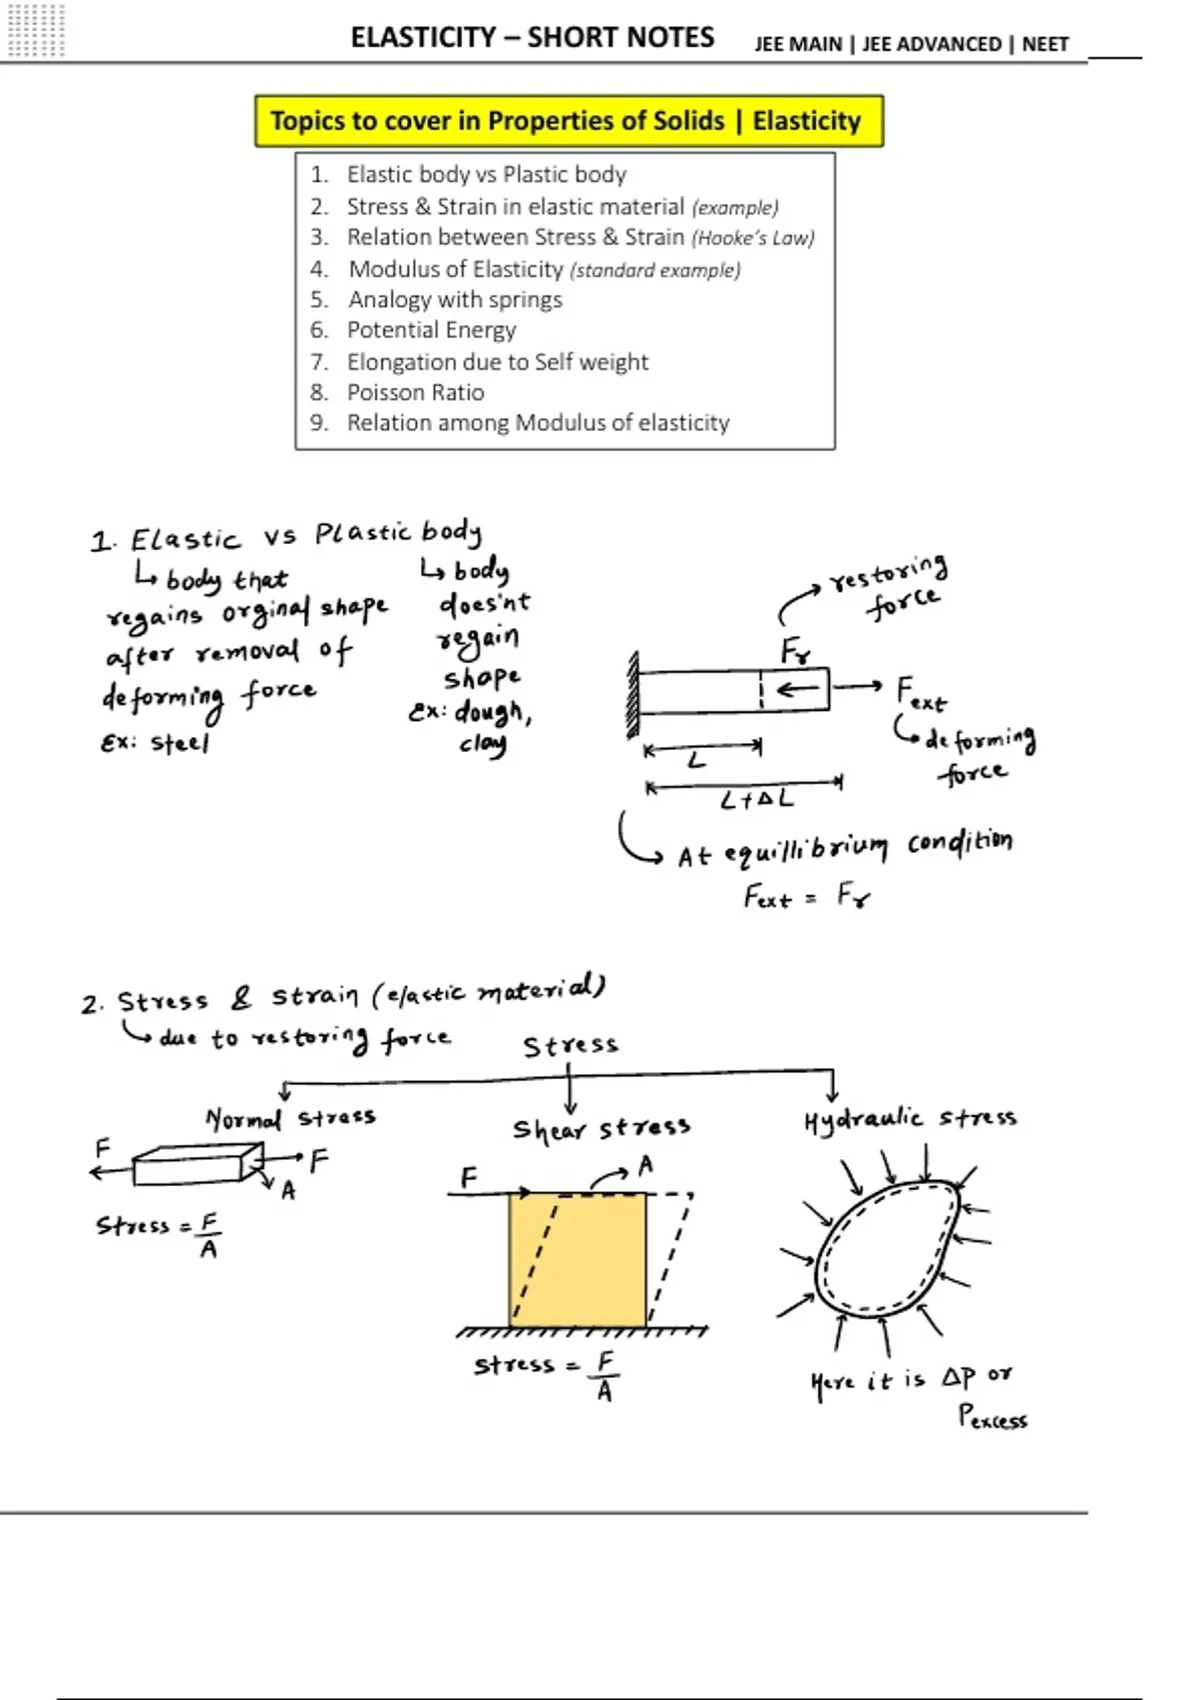 ELASTICITY – SHORT NOTES
JEE MAIN | JEE ADVANCED | NEET
Topics to cover in Properties of Solids | Elasticity
1. Elastic body vs Plastic body
2. Stress & Strain in elastic material (example)
3. Relation between Stress & Strain (Hooke's Law)
4. Modulus of Elasticity (standard example)
5. Analogy with springs
6. Potential Energy
7. Elongation due to Self weight
8. Poisson Ratio
9. Relation among Modulus of elasticity
1. Elastic vs Plastic body
↳ body that
regains orginal shape
after removal of
deforming force
Ex: steel
↳ body
does'nt
regain
shape
Ex: dough,
clay
restoring
force
Fr
Fext
deforming
force
L
L+ΔL
At equillibrium condition
Fext = Fr
2. Stress & strain (elastic material)
↳ due to restoring force
Stress
Normal stress
F
F
A
Stress = F
A
Shear stress
F
A
Stress = F
A
Hydraulic stress
Here it is ΔP or
Pexcess